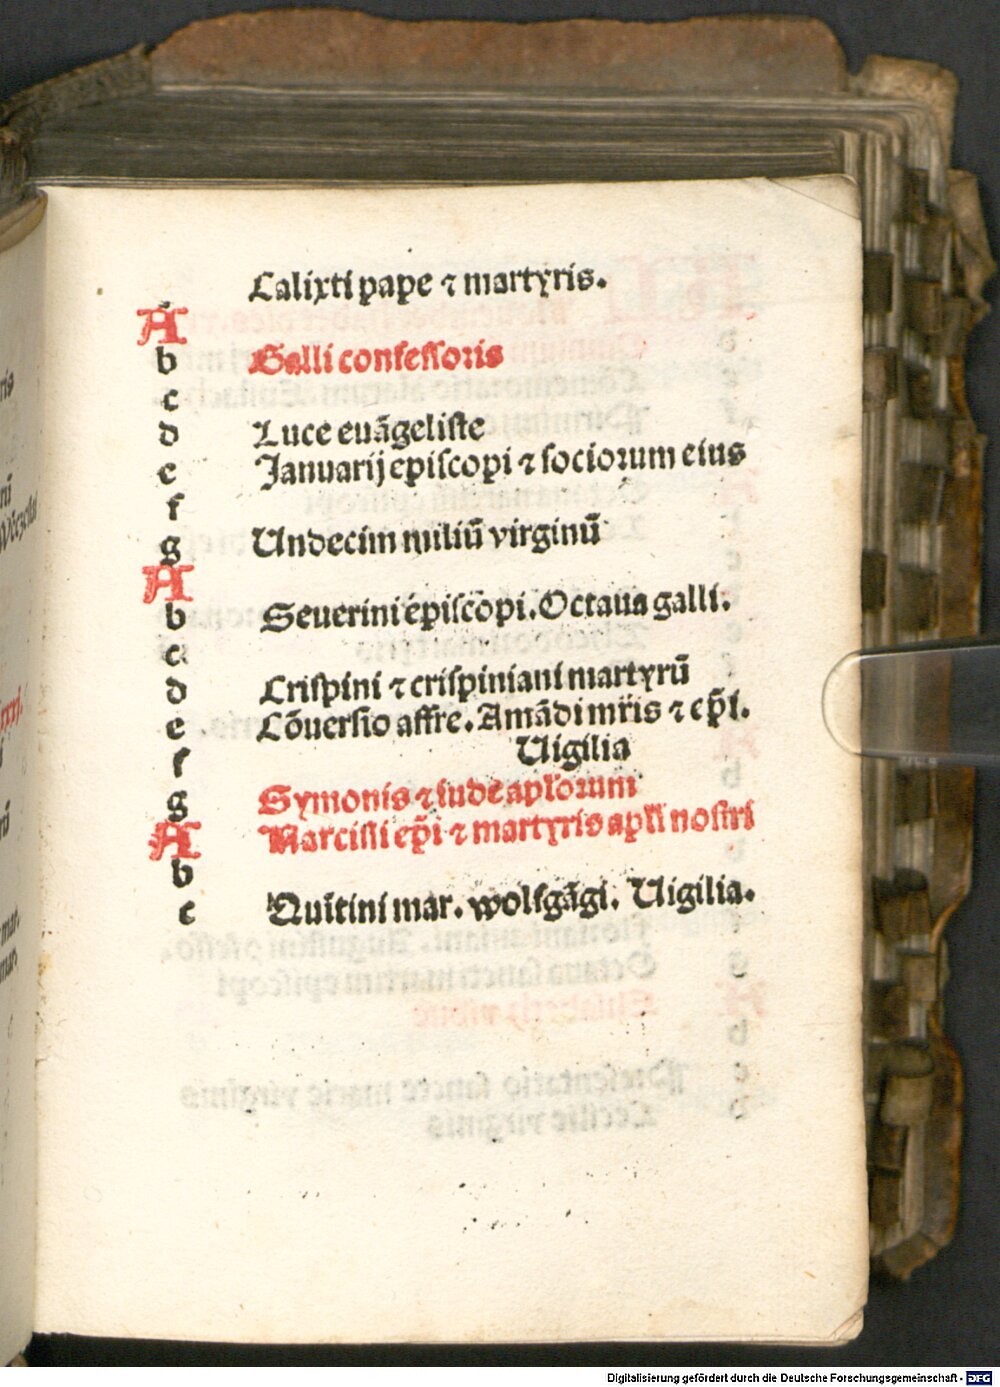 Calixti pape ⁊ martyris.
A
b Galli confessoris
c
d Luce euāgeliste
e Januarij episcopi ⁊ sociorum eius
f
g Undecim miliū virginū
A
b Seuerini episcopi. Octaua galli.
c
d Crispini ⁊ crispiniani martyrū
e Cōuersio affre. Amādi mr̄is ⁊ ep̄i.
f Uigilia
g Symonis ⁊ iude apl'orum
A Narcissi ep̄i ⁊ martyris apl'i nostri
b
c Quītini mar. wolfgāgi. Uigilia.
Digitalisierung gefördert durch die Deutsche Forschungsgemeinschaft - DFG